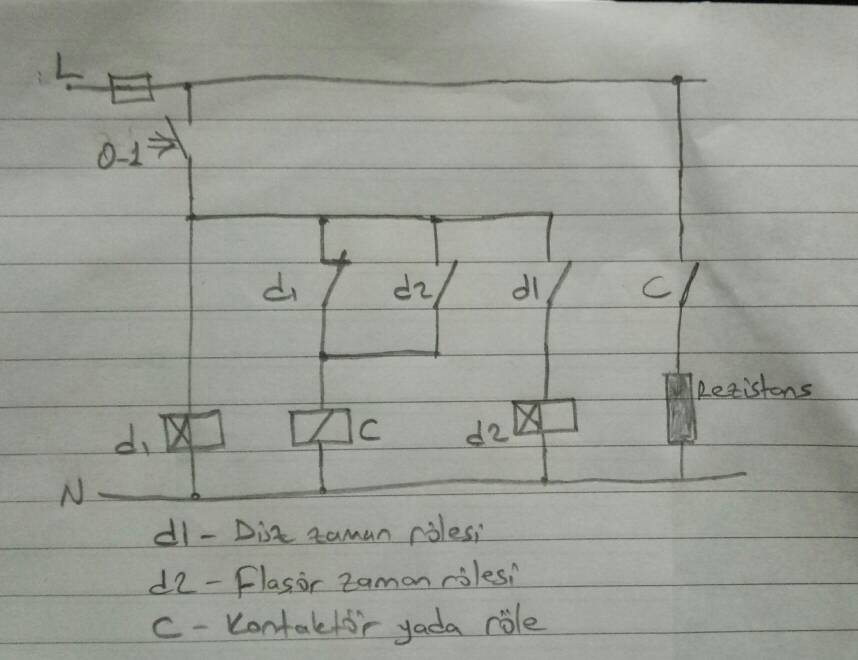 L
0-1
d1 d2 d1 C
Rezistans
d1 C d2
N
d1 - Düz zaman rölesi
d2 - Flaşör zaman rölesi
C - Kontaktör yada röle